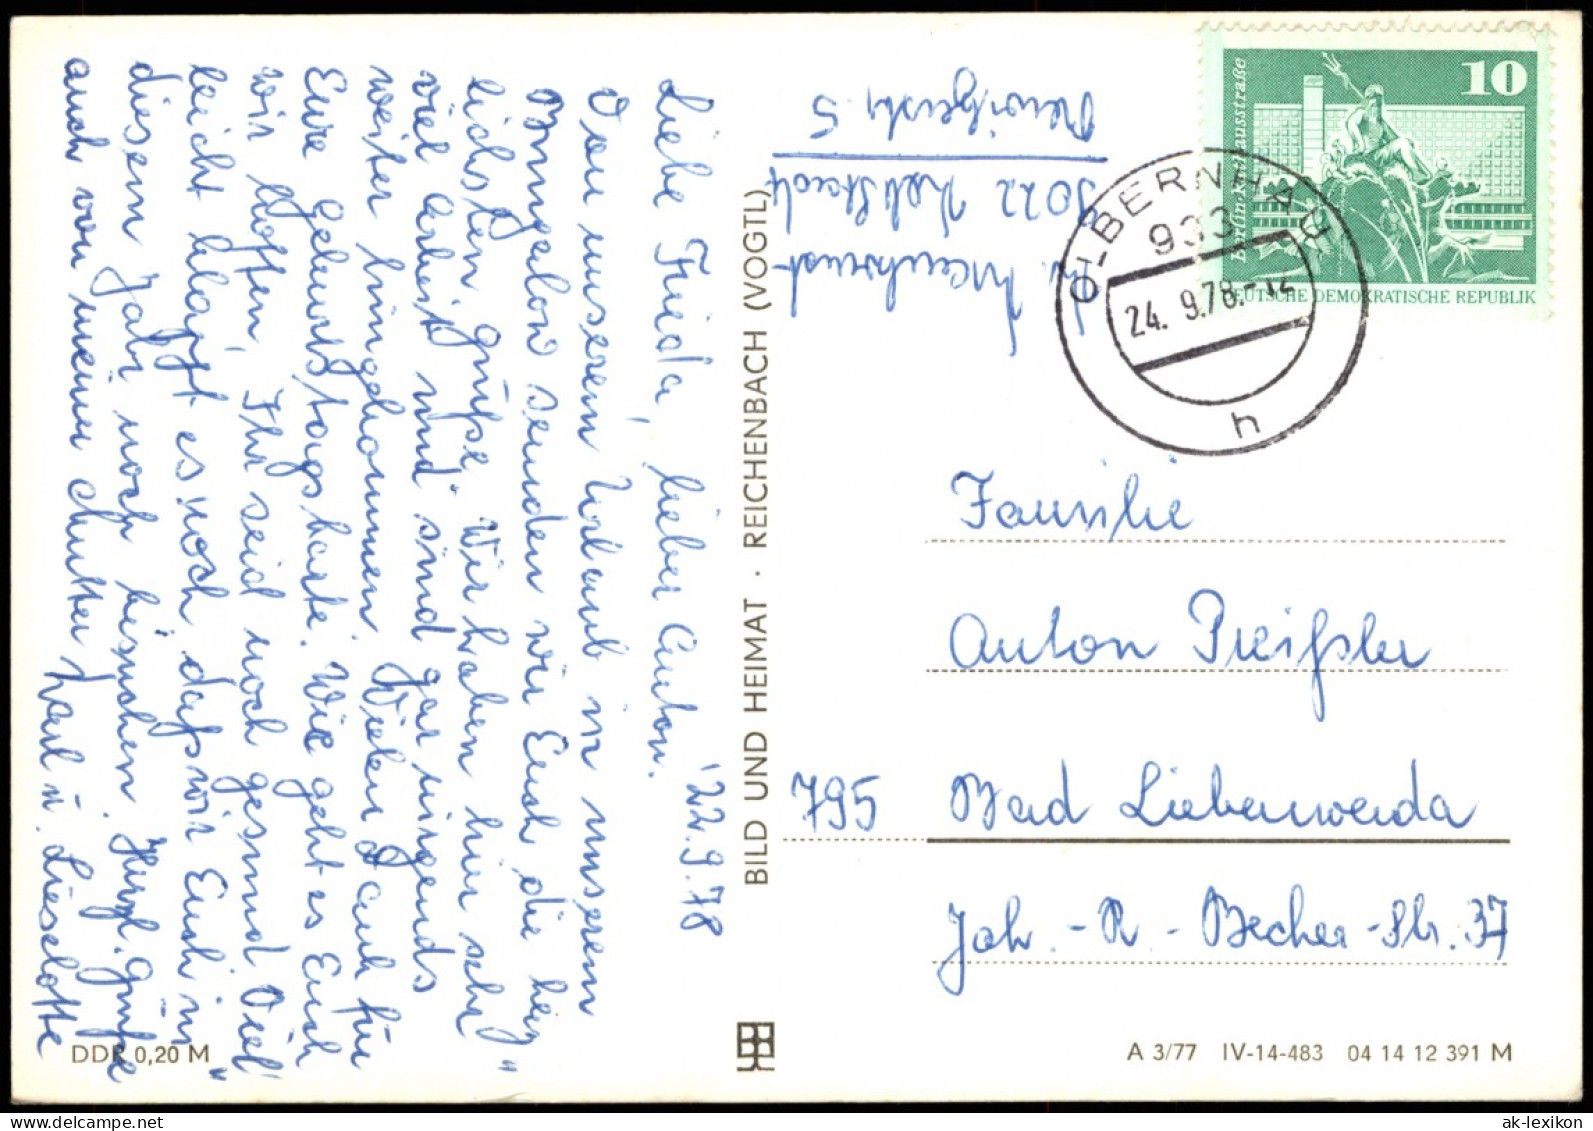 22.9.78
Liebe Frieda, lieber Anton.
Von unserem Urlaub in unserem
Bungalow senden wir Euch die herz-
lichsten Grüße. Wir haben hier sehr
viel Arbeit und sind gar nirgends
weiter hingekommen. Vielen Dank für
Eure Geburtstagskarte. Wie geht es Euch
wir hoffen, Ihr seid noch gesund. Viel-
leicht klappt es noch, daß wir Euch in
diesem Jahr noch besuchen. Herzl. Grüße
auch von meiner Mutter Karl u. Lieselotte
DDR 0,20 M
BILD UND HEIMAT · REICHENBACH (VOGTL)
5022
5
10
Berlin, Rathausstraße
DEUTSCHE DEMOKRATISCHE REPUBLIK
OLBERNHAU
933
24. 9.78.-12
h
Familie
Anton Preißler
795 Bad Liebenwerda
Joh.-R.-Becher-Str. 37
A 3/77 IV-14-483 04 14 12 391 M
ak-lexikon